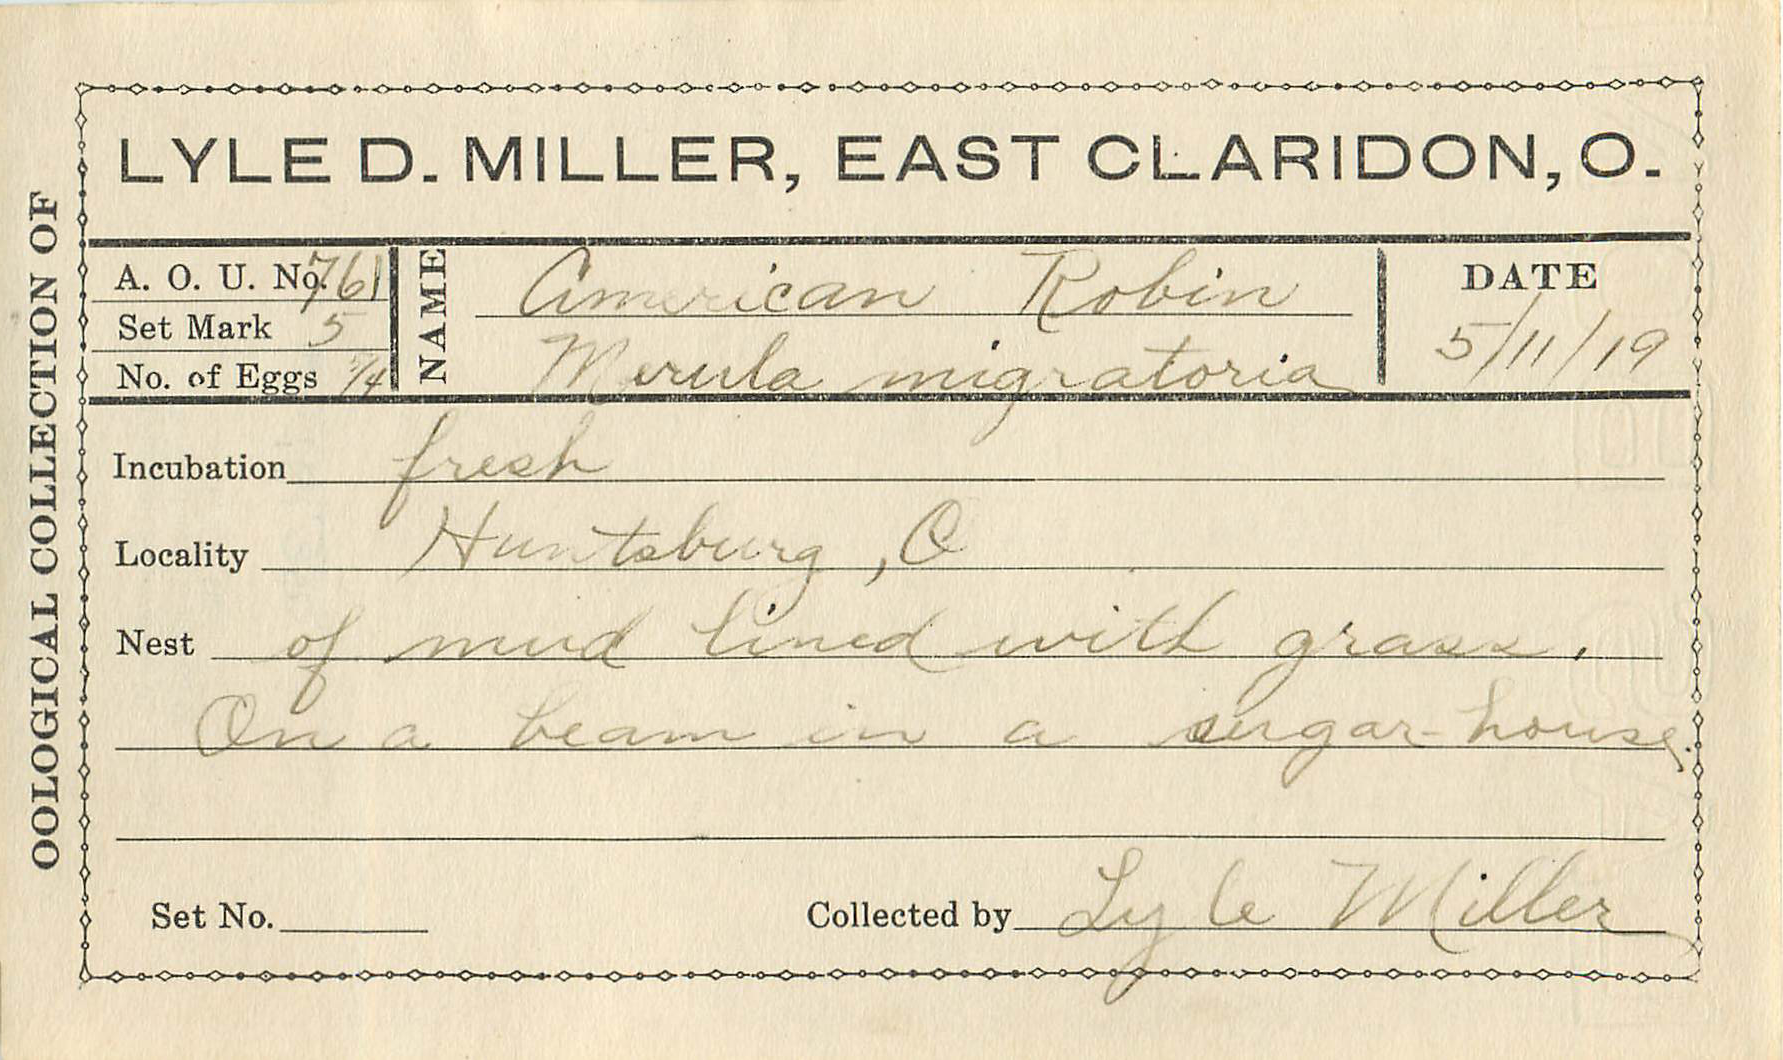 OOLOGICAL COLLECTION OF
LYLE D. MILLER, EAST CLARIDON, O.
A. O. U. No. 761
Set Mark 5
No. of Eggs /4
NAME
American Robin
Merula migratoria
DATE
5/11/19
Incubation fresh
Locality Huntsburg, O
Nest of mud lined with grass.
On a beam in a sugar-house.
Set No.
Collected by Lyle Miller